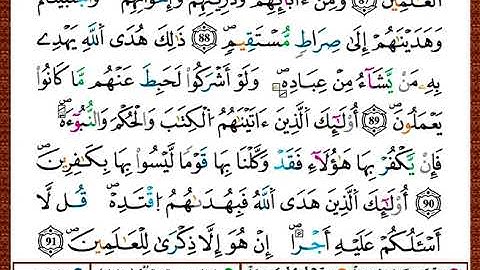 الْعَٰلَمِينَ ۝٨٧ وَمِنْ ءَابَآئِهِمْ وَذُرِّيَّٰتِهِمْ وَإِخْوَٰنِهِمْ ۖ وَاجْتَبَيْنَٰهُمْ
وَهَدَيْنَٰهُمْ إِلَىٰ صِرَاطٍ مُّسْتَقِيمٍ ۝88 ذَٰلِكَ هُدَى ٱللَّهِ يَهْدِے
بِهِۦ مَنْ يَّشَآءُ مِنْ عِبَادِهِۦ ۖ وَلَوْ أَشْرَكُوا۟ لَحَبِطَ عَنْهُم مَّا كَانُوا۟
يَعْمَلُونَ ۖ ۝89 أُو۟لَٰٓئِكَ ٱلَّذِينَ ءَاتَيْنَٰهُمُ ٱلْكِتَٰبَ وَالْحُكْمَ وَالنُّبُوٓءَةَ ۖ
فَإِنْ يَّكْفُرْ بِهَا هَٰٓؤُلَآءِ فَقَدْ وَكَّلْنَا بِهَا قَوْمًا لَّيْسُوا۟ بِهَا بِكَٰفِرِينَ ۖ
۝90 أُو۟لَٰٓئِكَ ٱلَّذِينَ هَدَى ٱللَّهُ ۖ فَبِهُدَىٰهُمُ ٱقْتَدِهْ ۖ قُل لَّآ
أَسْـَٔلُكُمْ عَلَيْهِ أَجْرًا ۖ إِنْ هُوَ إِلَّا ذِكْرَىٰ لِلْعَٰلَمِينَ ۖ ۝91